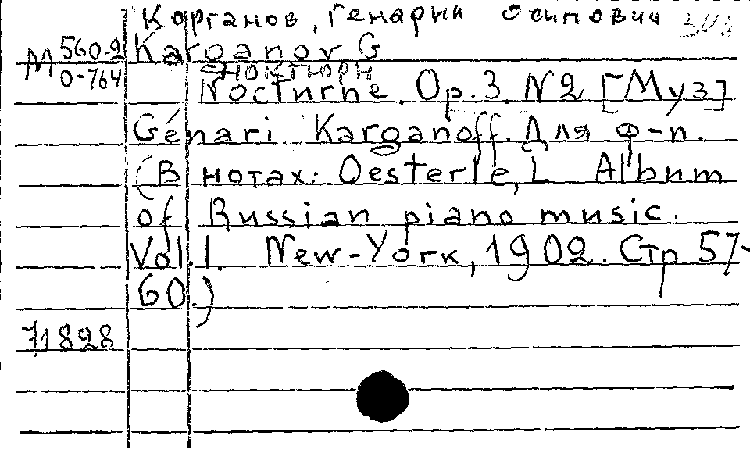 Корганов, Генарий Осипович
М 560-2 Karganov G
0-764 Ноктюрн
Nocturne. Op. 3. N2 [Муз]
Génari Karganoff. Для ф-п.
(В нотах: Oesterle, L Album
of Russian piano music.
Vol. 1. New-York, 1902. Стр 57-
60.)
71828